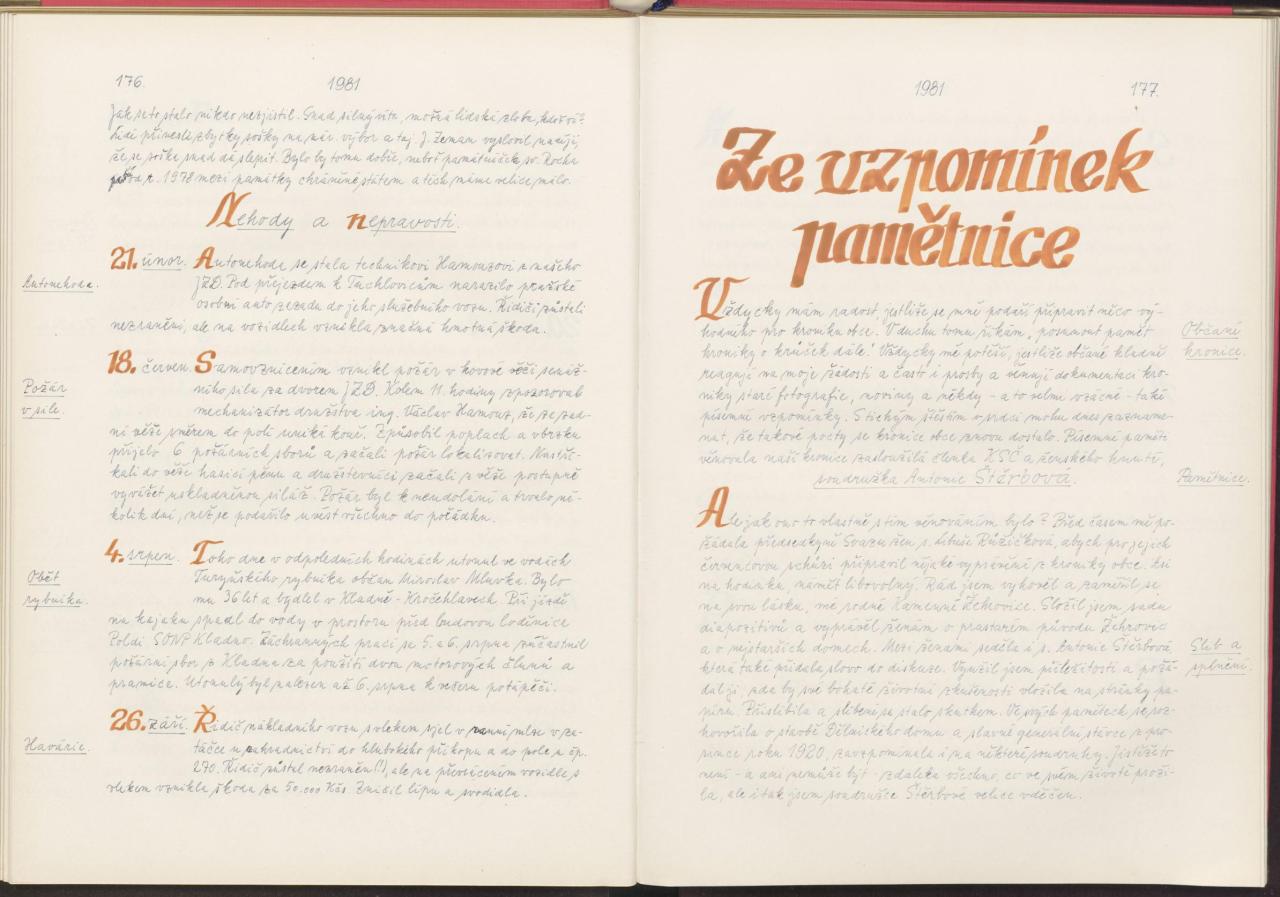 176.
1981
Jak se to stalo nikdo nezjistil. Snad silný vítr, možná lidská zloba, kdož ví?
Lidi přinesli zbytky sošky na nár. výbor a taj. J. Zeman vyslovil naději,
že se soška snad dá slepit. Bylo by tomu dobře, neboť památníček sv. Rocha
od r. 1978 mezi památky chráněné státem a těch máme velice málo.
Nehody a nepravosti.
Autonehoda.
21. únor. Autonehoda se stala technikovi Hamouzovi z našeho
JZD. Pod přejezdem k Tuchlovicům narazilo pražské
osobní auto zezadu do jeho služebního vozu. Řidiči zůstali
nezraněni, ale na vozidlech vznikla značná hmotná škoda.
Požár
v sile.
18. červen. Samovznícením vznikl požár v kovové věži senáž-
ního sila za dvorem JZD. Kolem 11. hodiny zpozoroval
mechanizátor družstva ing. Václav Hamouz, že ze zad-
ní věže směrem do polí uniká kouř. Způsobil poplach a vbrzku
přijelo 6 požárních sborů a začali požár lokalizovat. Nastří-
kali do věže hasicí pěnu a družstevníci začali z věže postupně
vyvážet uskladněnou siláž. Požár byl k neudolání a trvalo ně-
kolik dní, než se podařilo uvést všechno do pořádku.
Oběť
rybníka.
4. srpen. Toho dne v odpoledních hodinách utonul ve vodách
Turyňského rybníka občan Miroslav Mluvka. Bylo
mu 36 let a bydlel v Kladně - Kročehlavech. Při jízdě
na kajaku spadl do vody v prostoru před budovou loděnice
Poldi SONP Kladno. Záchranných prací se 5. a 6. srpna zúčastnil
požární sbor z Kladna za použití dvou motorových člunů a
pramice. Utonulý byl nalezen až 6. srpna k večeru potápěči.
Havárie.
26. září. Řidič nákladního vozu s vlekem sjel v ranní mlze v za-
táčce u zahradnictví do hlubokého příkopu a do pole u čp.
270. Řidič zůstal nezraněn (!), ale na převráceném vozidle s
vlekem vznikla škoda za 50.000 Kčs. Zničil lípu a svodidla.
1981
177.
Ze vzpomínek
pamětnice
Vždycky mám radost, jestliže se mně podaří připravit něco vý-
hodného pro kroniku obce. V duchu tomu říkám „posunout paměť
kroniky o krůček dále." Vždycky mě potěší, jestliže občané kladně
reagují na moje žádosti a často i prosby a věnují dokumentaci kro-
niky staré fotografie, noviny a někdy - a to velmi vzácně - také
písemné vzpomínky. S tichým štěstím v srdci mohu dnes zazname-
nat, že takové pocty se kronice obce znovu dostalo. Písemné paměti
věnovala naší kronice zasloužilá členka KSČ a ženského hnutí,
soudružka Antonie Štěrbová.
Občané
kronice.
Pamětnice.
Ale jak ono to vlastně s tím věnováním bylo? Před časem mě po-
žádala předsedkyně Svazu žen s. Libuše Růžičková, abych pro jejich
červencovou schůzi připravil nějaké vyprávění z kroniky obce. Asi
na hodinku, námět libovolný. Rád jsem vyhověl a zamířil se
na svou lásku, mé rodné Kamenné Žehrovice. Složil jsem sadu
diapozitivů a vyprávěl ženám o prastarém původu Žehrovic
a o nejstarších domech. Mezi ženami seděla i s. Antonie Štěrbová,
která také přidala slovo do diskuze. Využil jsem příležitosti a požá-
dal ji, zda by své bohaté životní zkušenosti vložila na stránky pa-
píru. Přislíbila a slíbení se stalo skutkem. Ve svých pamětech se roz-
hovořila o stavbě Dělnického domu a slavné generální stávce z pro-
since roku 1920, zavzpomínala i na některé soudruhy. Jestliže to
není - a ani nemůže být - zdaleka všechno, co ve svém životě proži-
la, ale i tak jsem soudružce Štěrbové velice vděčen.
Slib a
splnění.